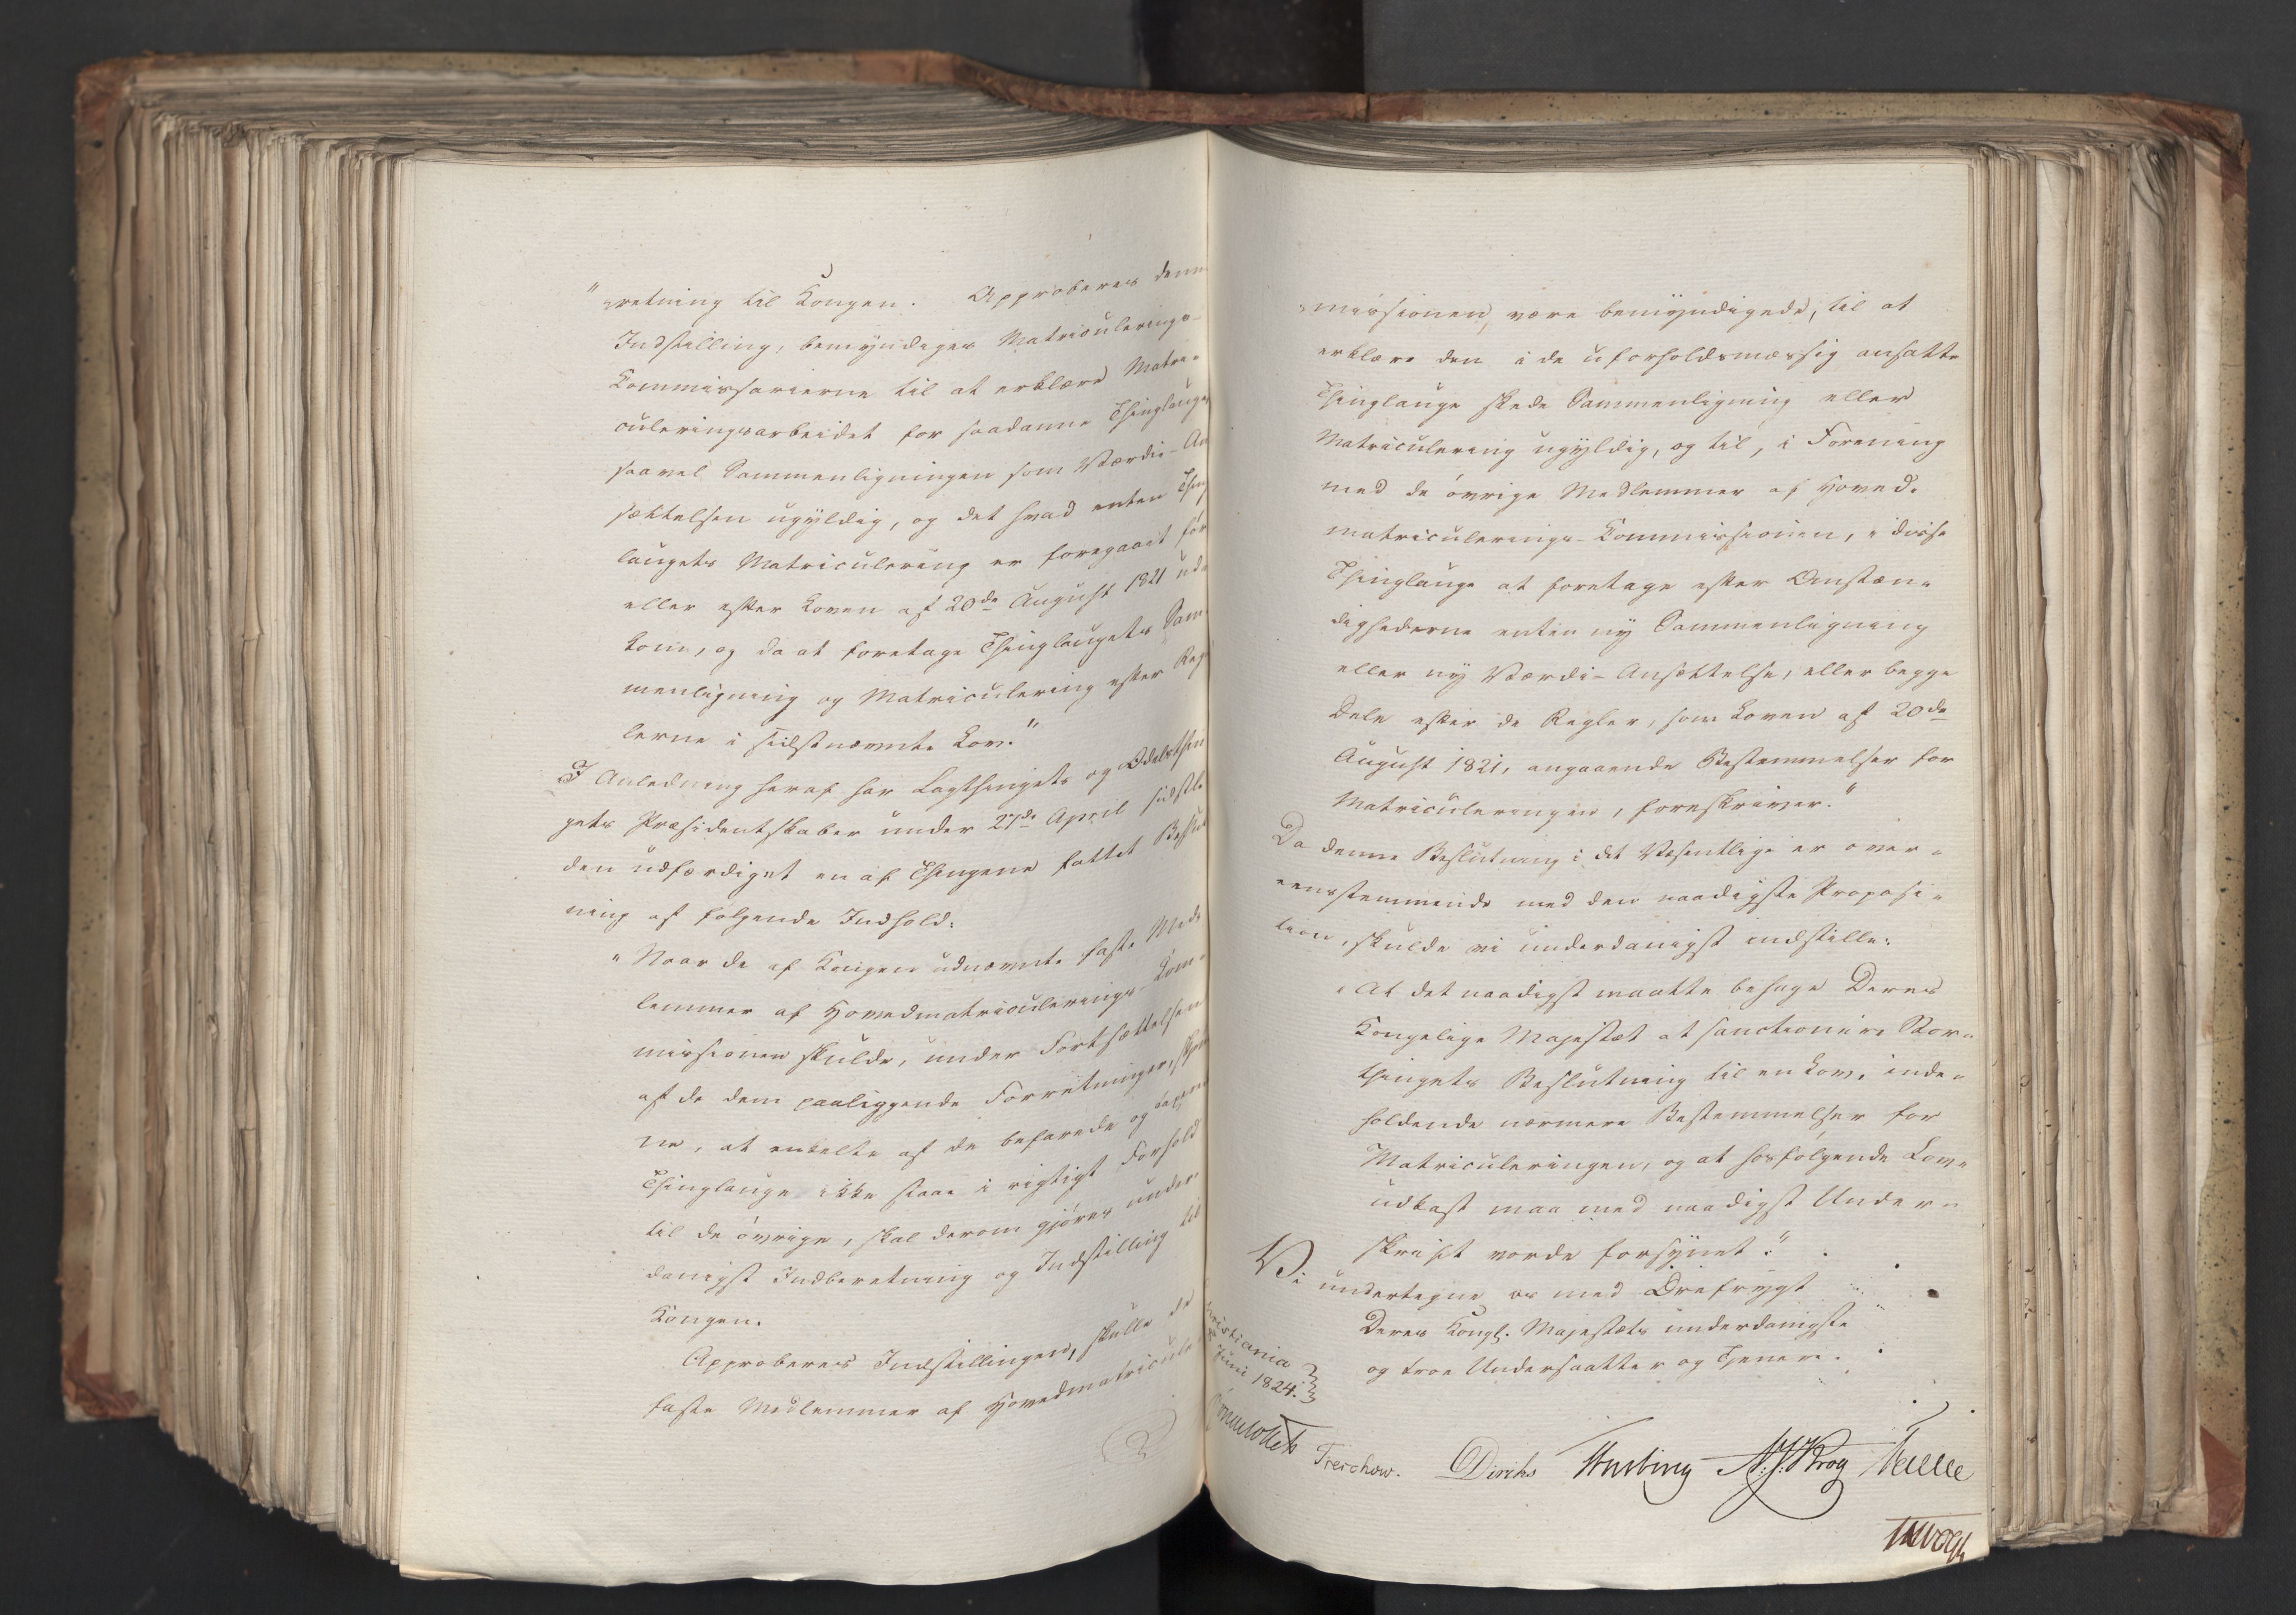 "retning til Kongen. Approberes denne
Indstilling, bemyndiges Matriculerings-
Commissarierne til at erklære Matri-
culeringsarbeidet for saadanne Thinglauge,
saavel Sammenligningen som Værdie-An
sættelsen ugyldig, og det hvad enten Thing
laugets Matriculering er foregaaet før
eller efter Loven af 20de August 1821 ud-
kom, og da at foretage Thinglaugets Sam-
menligning og Matriculering efter Reg
lerne i sidstnævnte Lov."
I Anledning heraf har Lagthingets og Odelsthin
gets Præsidentskaber under 27de April sidstle
den udfærdiget en af Thingene fattet Beslut
ning af følgende Indhold:
"Naar de af Kongen udnævnte faste Med-
lemmer af Hovedmatriculerings-Com-
missionen skulde, under Fortsættelsen
af de dem paaliggende Forretninger, skjøn
ne, at enkelte af de befarede og
Thinglauge ikke staae i rigtigt Forhold
til de øvrige, skal derom gjøres under-
danigst Indberetning og Indstilling til
Kongen.
Approberes Indstillingen, skulle de
faste Medlemmer af Hovedmatricule
missionen, være bemyndigede, til at
erklære den i de uforholdsmæssig ansatte
Thinglauge skede Sammenligning eller
Matriculering ugyldig, og til, i Forening
med de øvrige Medlemmer af Hoved-
matriculerings-Commissionen, i disse
Thinglauge at foretage efter Omstæn-
dighederne enten ny Sammenligning
eller ny Værdi-Ansættelse, eller begge
Dele efter de Regler, som Loven af 20de
August 1821, angaaende Bestemmelser for
Matriculeringen, foreskriver."
Da denne Beslutning i det Væsentlige er over-
eensstemmende med den naadigste Proposi-
tion, skulde vi underdanigst indstille:
"At det naadigst maatte behage Deres
Kongelige Majestæt at sanctionere Stor-
thingets Beslutning til en Lov, inde-
holdende nærmere Bestemmelser for
Matriculeringen, og at hosfølgende Lov-
udkast maa med naadigst Under-
skript vorde forsynet."
Vi undertegne os med Ærefrygt
Deres Kongl. Majestæts underdanigste
og troe Undersaatter og Tjenere.
ristiania
Juni 1824.
Treschow. Diriks Hn. Krog